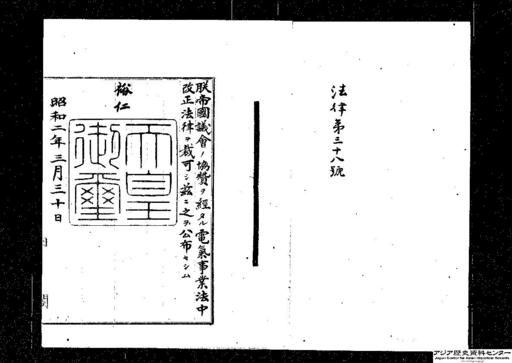 法律第三十八號
朕帝國議會ノ協贊ヲ經タル電氣事業法中
改正法律ヲ裁可シ茲ニ之ヲ公布セシム
裕仁
天皇
御璽
昭和二年三月三十日
アジア歴史資料センター
Japan Center for Asian Historical Records